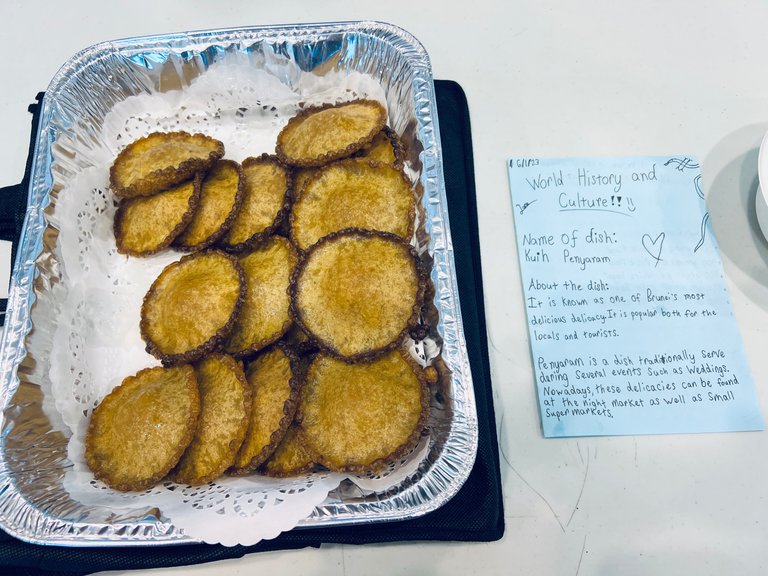 6/1/23
World History and
Culture!! !!
Name of dish:
Kuih Penyaram
About the dish:
It is known as one of Brunei's most
delicious delicacy. It is popular both for the
locals and tourists.
Penyaram is a dish traditionally serve
during several events such as weddings.
Nowadays, these delicacies can be found
at the night market as well as small
super markets.